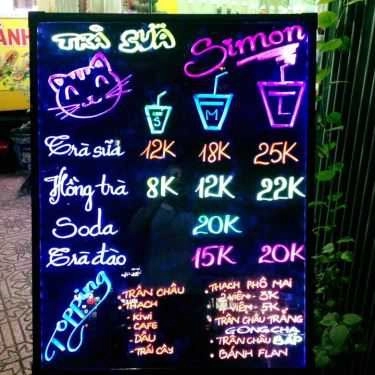 ÁNH
TRÀ SỮA
Simon
S
M
L
Trà sữa 12K 18K 25K
Hồng trà 8K 12K 22K
Soda 20K
Trà đào 15K 20K
TOPPING
TRÂN CHÂU
THẠCH
KIWI
CAFE
DÂU
TRÁI CÂY
THẠCH PHÔ MAI
2 VIÊN - 3K
4 VIÊN - 5K
TRÂN CHÂU TRẮNG
GONG CHA
TRÂN CHÂU BẮP
BÁNH FLAN